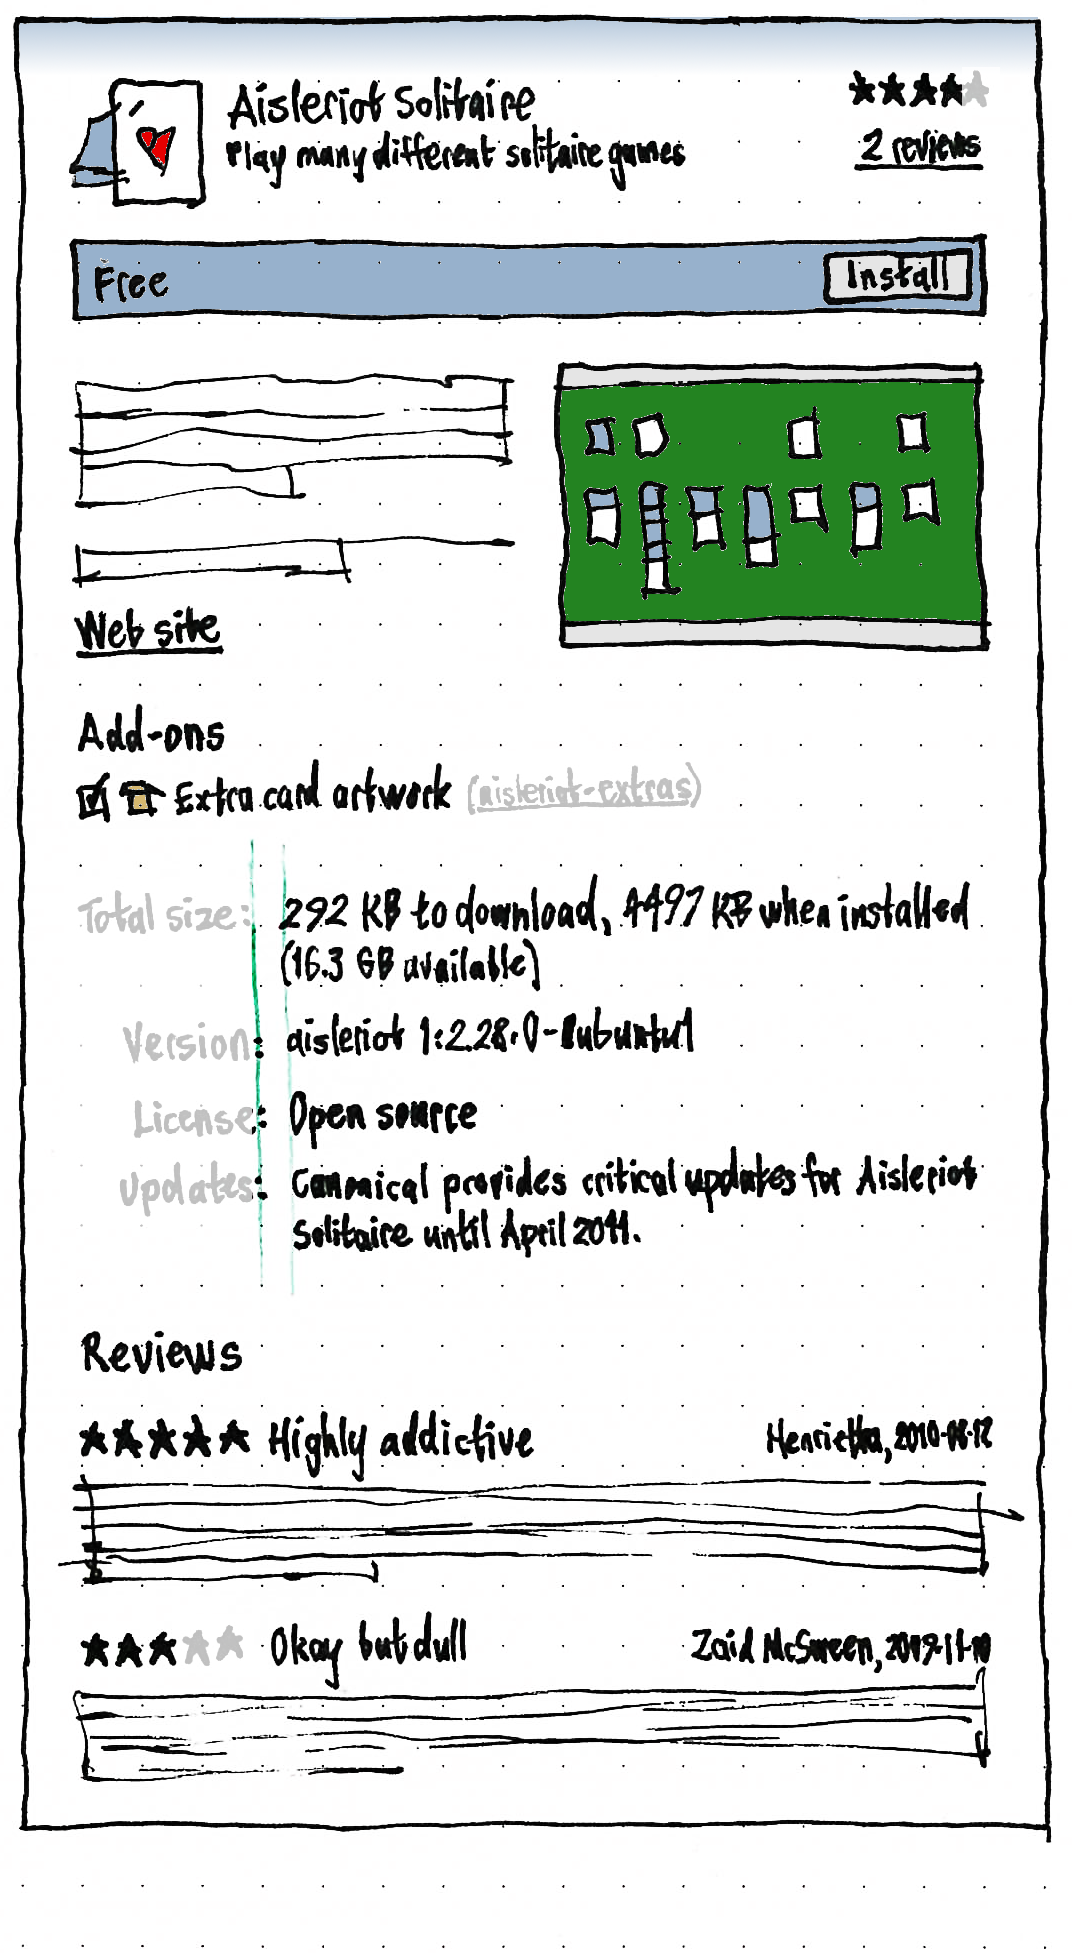 Aisleriot Solitaire
Play many different solitaire games
2 reviews
Free
Install
Web site
Add-ons
Extra card artwork (aisleriot-extras)
Total size: 292 KB to download, 4497 KB when installed
(16.3 GB available)
Version: aisleriot 1:2.28.0-0ubuntu1
License: Open source
Updates: Canonical provides critical updates for Aisleriot
Solitaire until April 2011.
Reviews
Highly addictive
Henrietta, 2010-08-12
Okay but dull
Zaid McSween, 2009-11-10